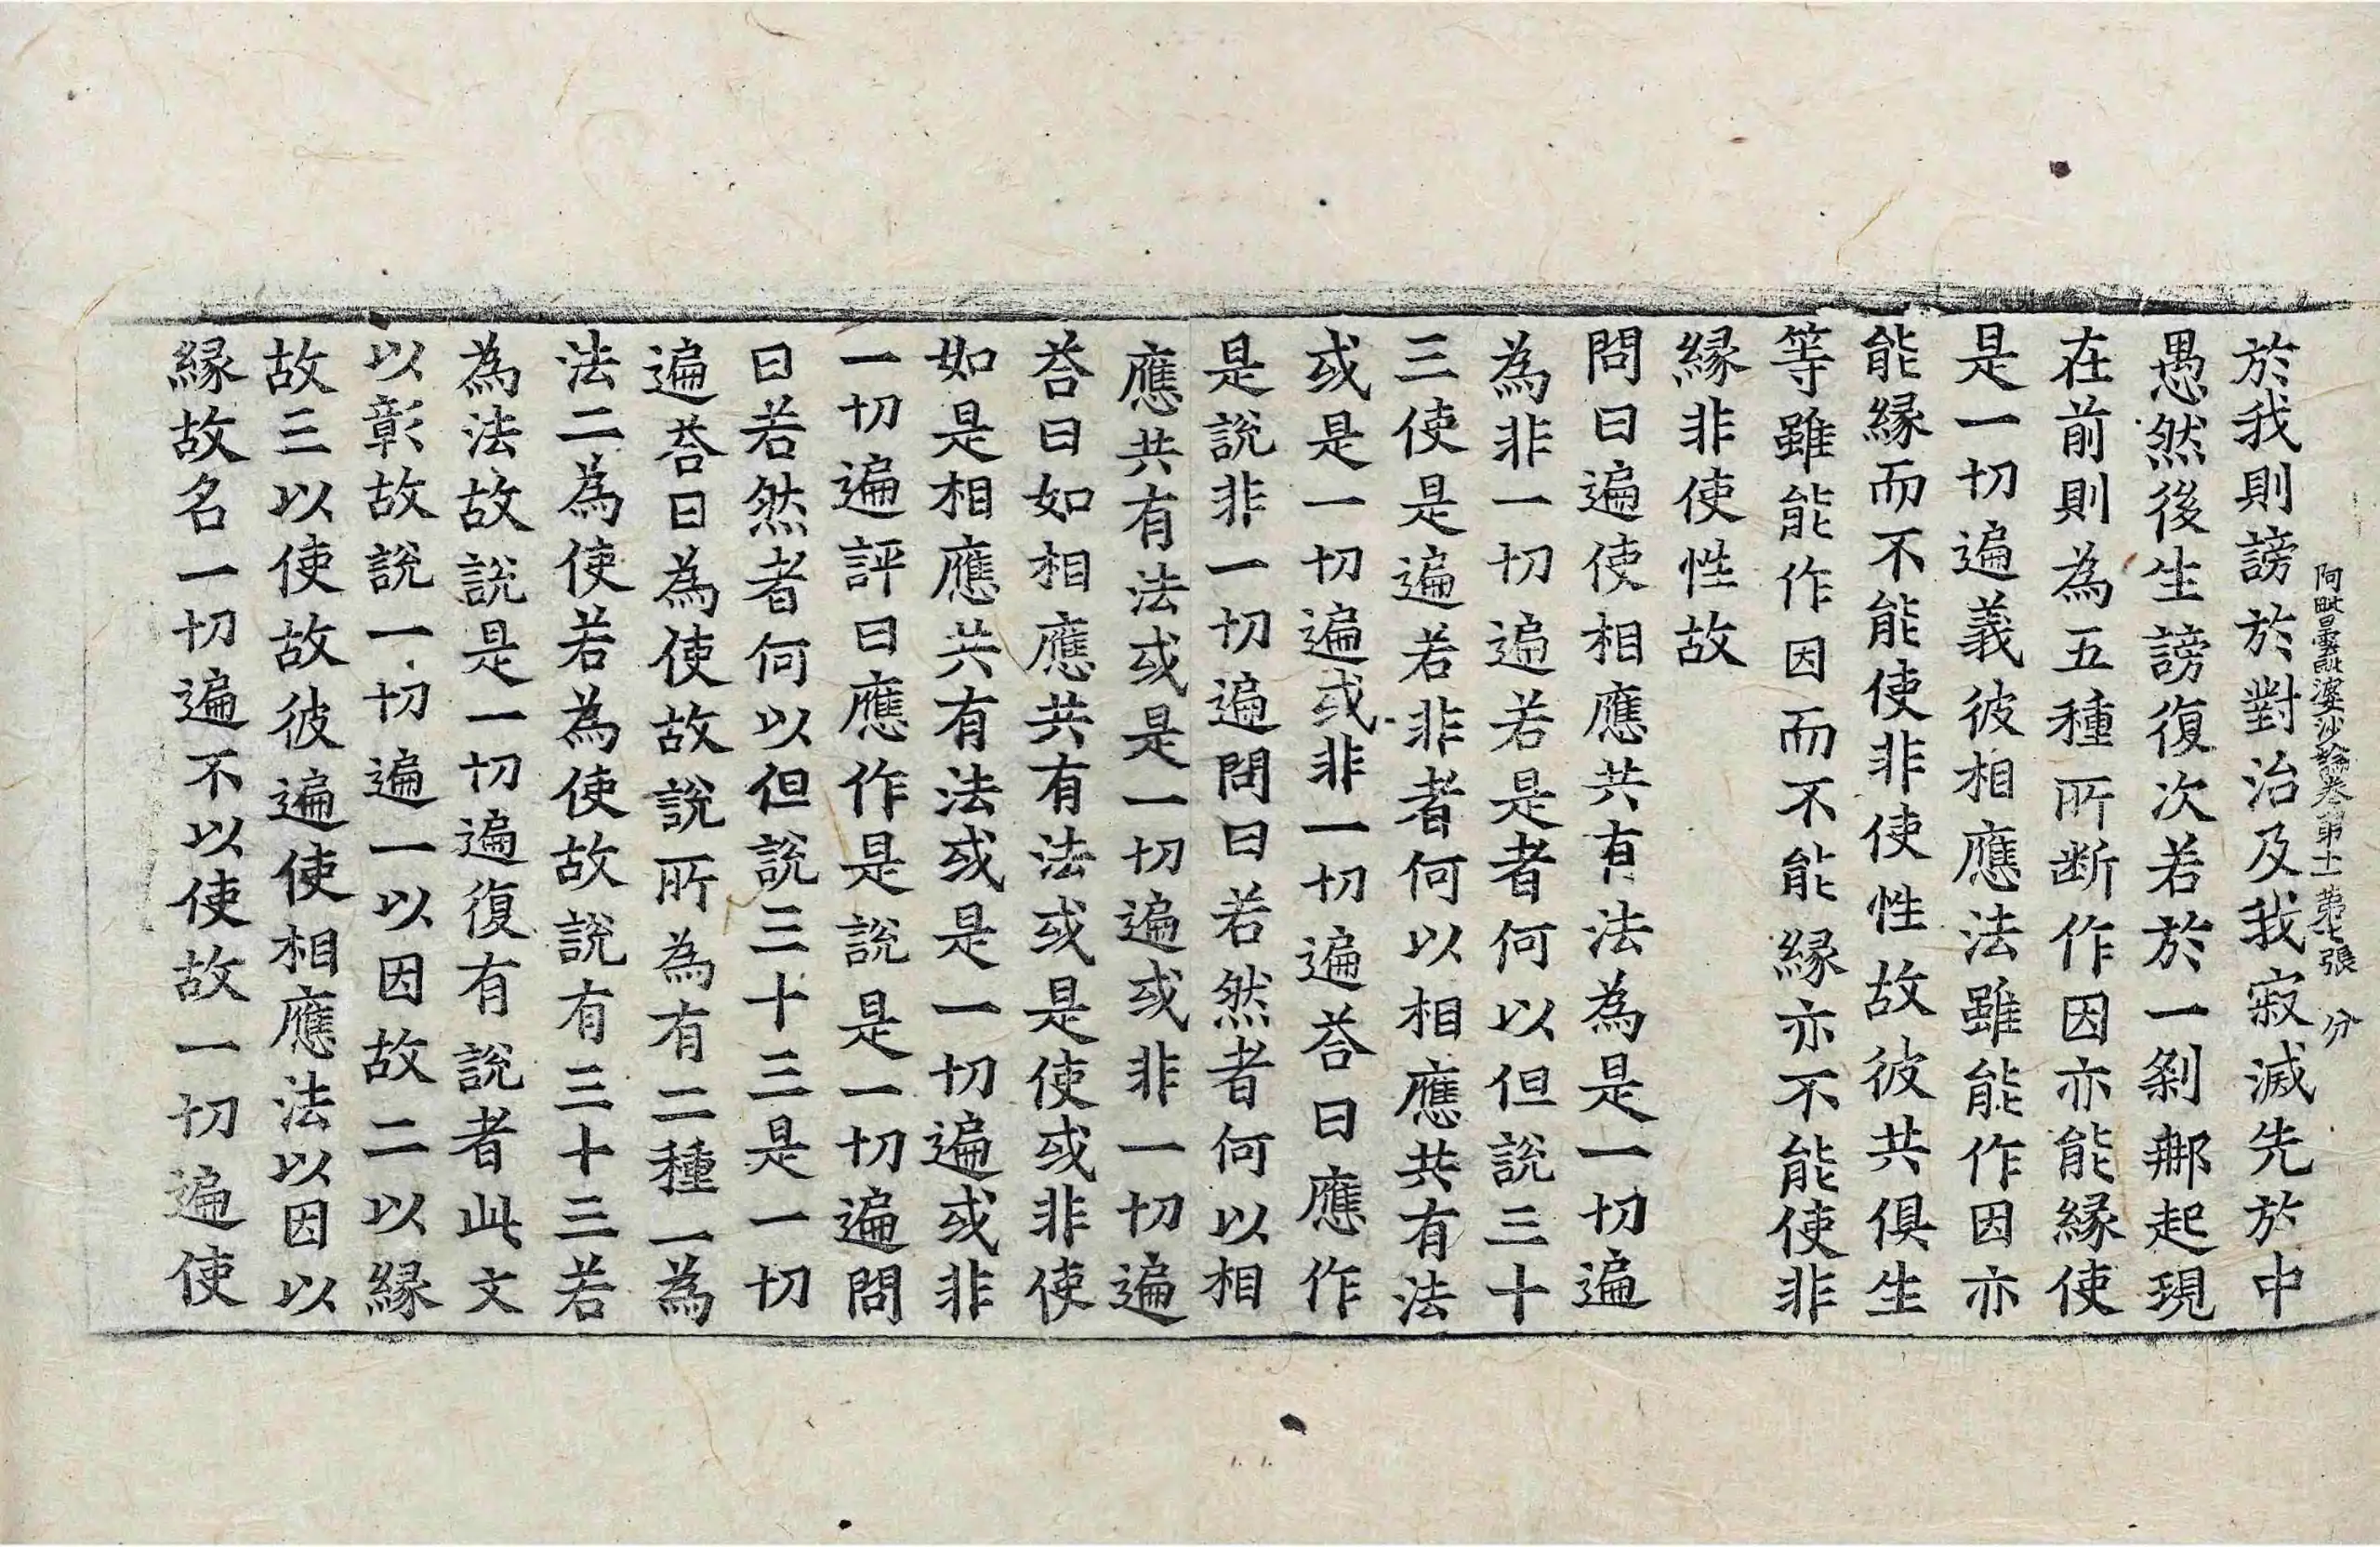 阿毗曇毗婆沙論卷第十一 第七張 分
於我則謗於對治及我寂滅先於中
愚然後生謗復次若於一剎那起現
在前則為五種所断作因亦能緣使
是一切遍義彼相應法雖能作因亦
能緣而不能使非使性故彼共俱生
等雖能作因而不能緣亦不能使非
緣非使性故
問曰遍使相應共有法為是一切遍
為非一切遍若是者何以但說三十
三使是遍若非者何以相應共有法
或是一切遍或非一切遍荅曰應作
是說非一切遍問曰若然者何以相
應共有法或是一切遍或非一切遍
荅曰如相應共有法或是使或非使
如是相應共有法或是一切遍或非
一切遍評曰應作是說是一切遍問
曰若然者何以但說三十三是一切
遍荅曰為使故說所為有二種一為
法二為使若為使故說有三十三若
為法故說是一切遍復有說者此文
以彰故說一切遍一以因故二以緣
故三以使故彼遍使相應法以因以
緣故名一切遍不以使故一切遍使